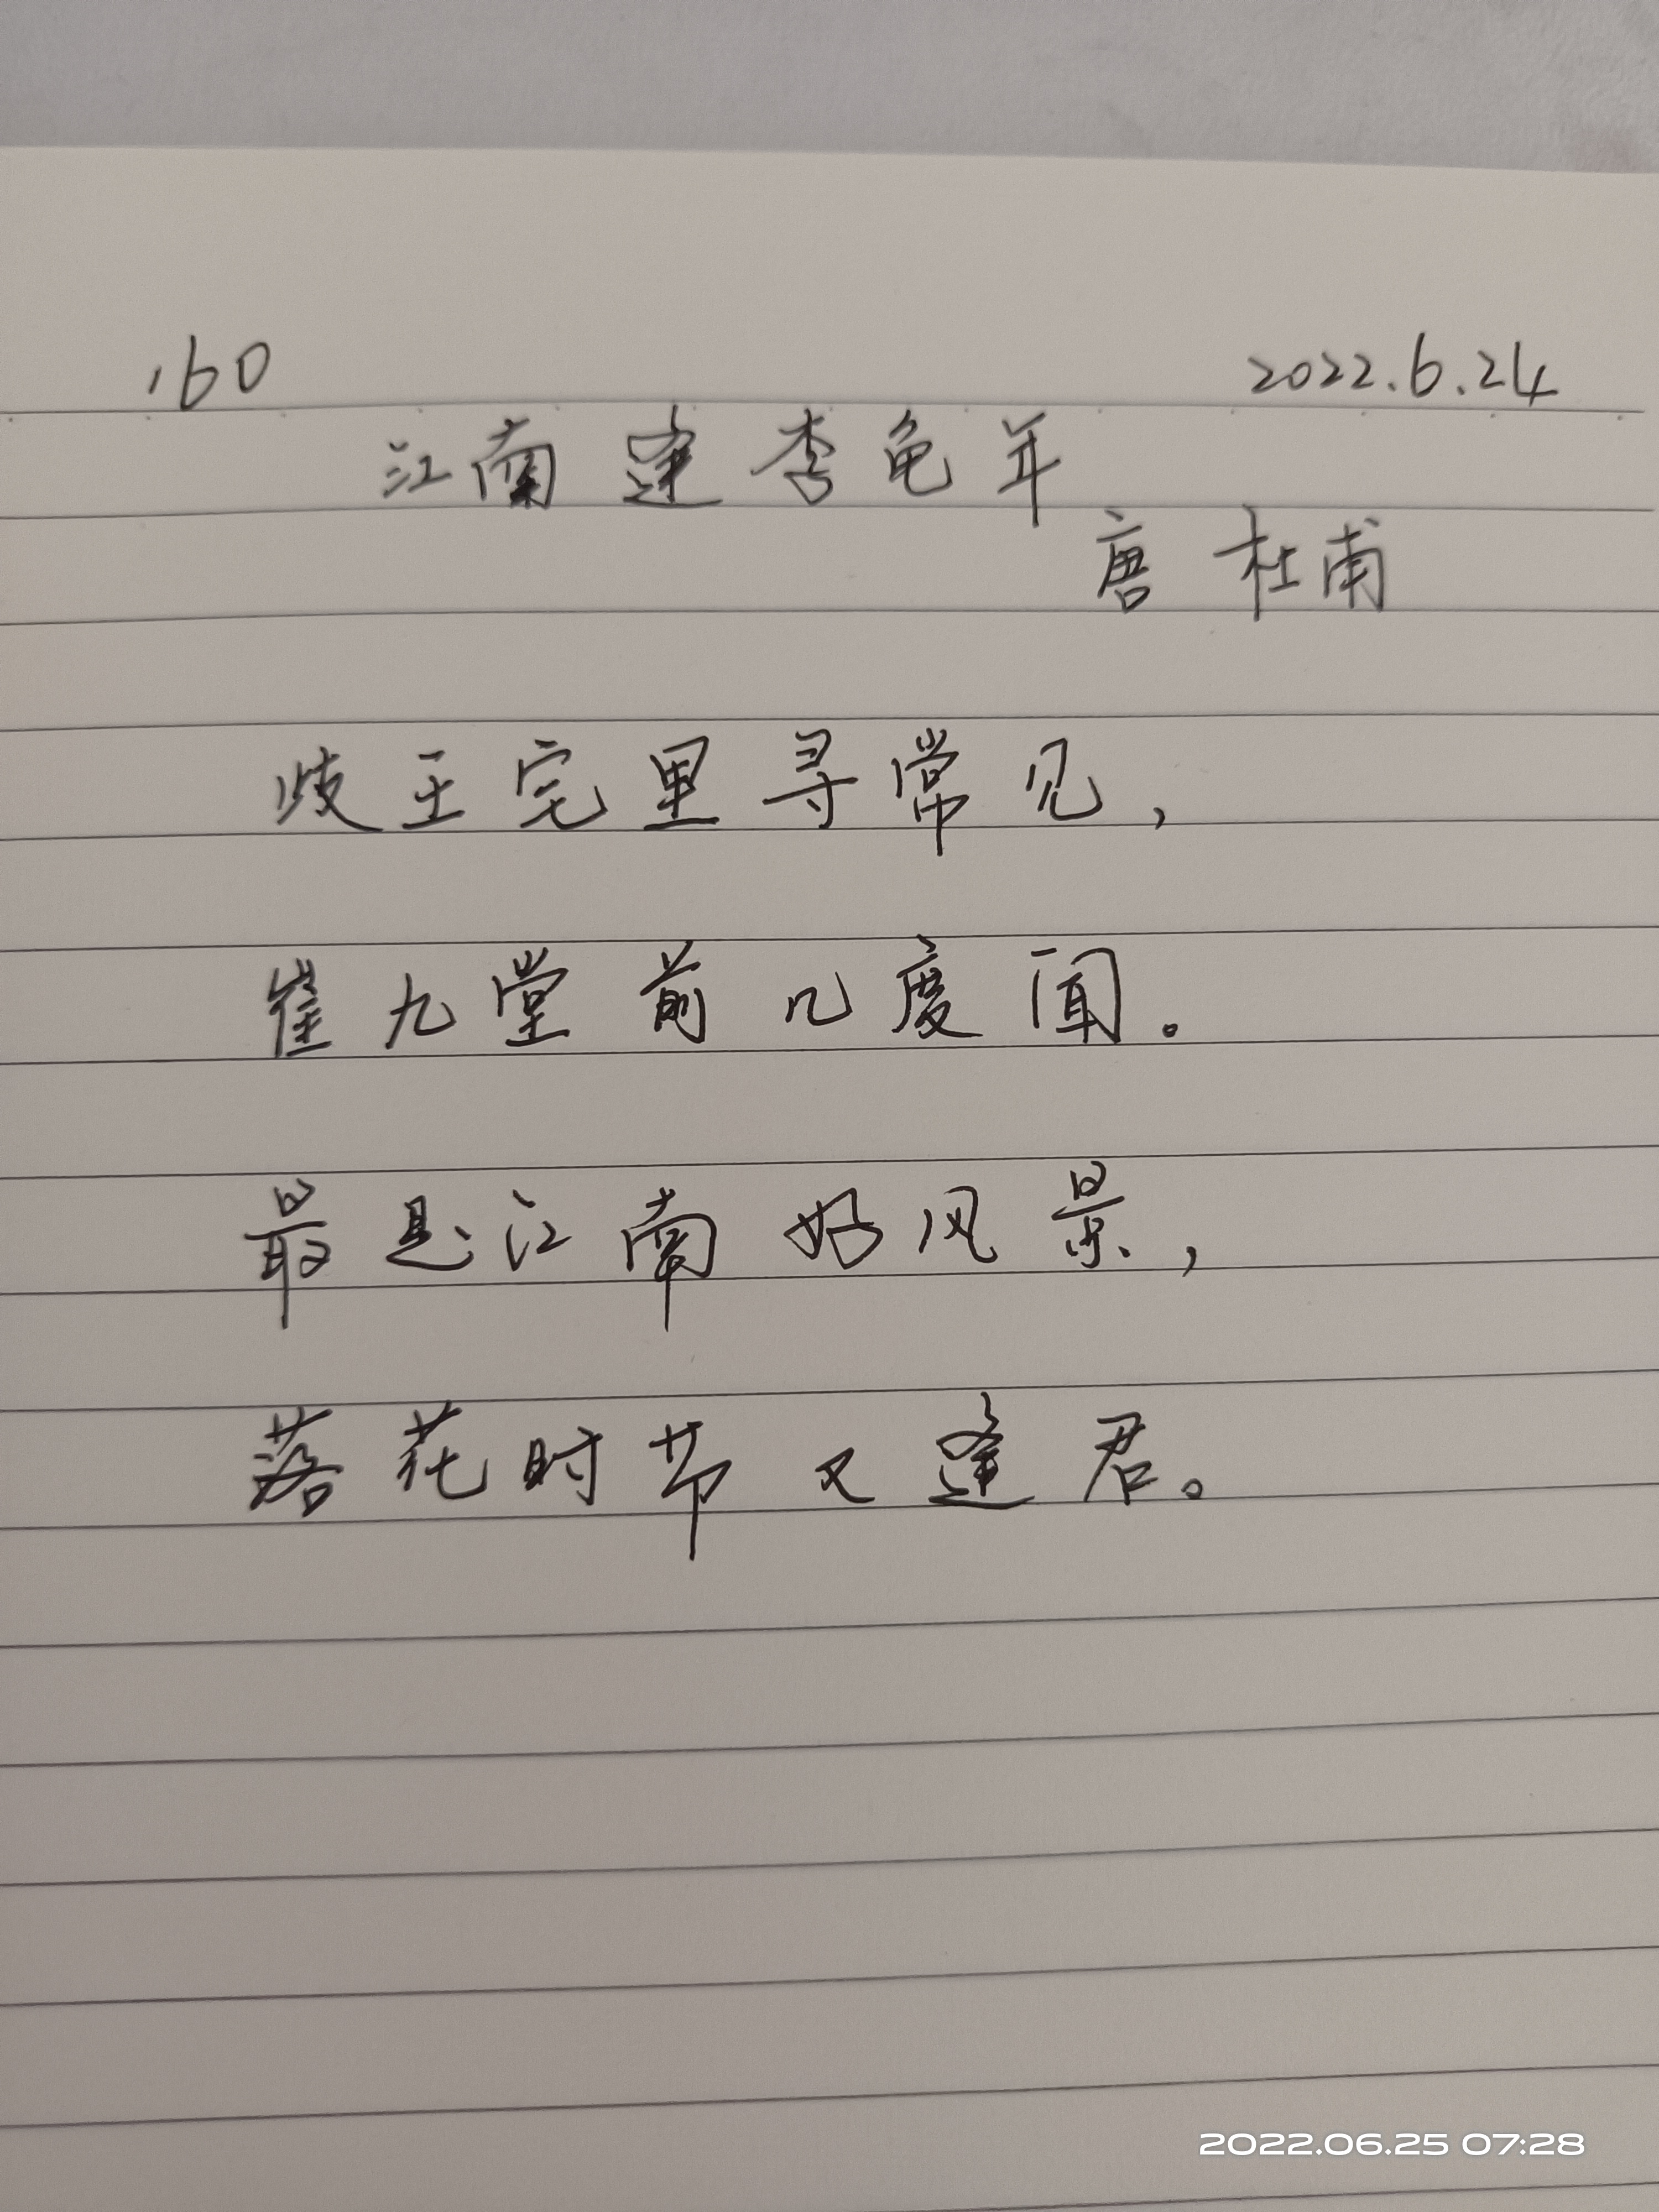 160 2022.6.24
江南逢李龟年
唐 杜甫
岐王宅里寻常见，
崔九堂前几度闻。
最是江南好风景，
落花时节又逢君。
2022.06.25 07:28